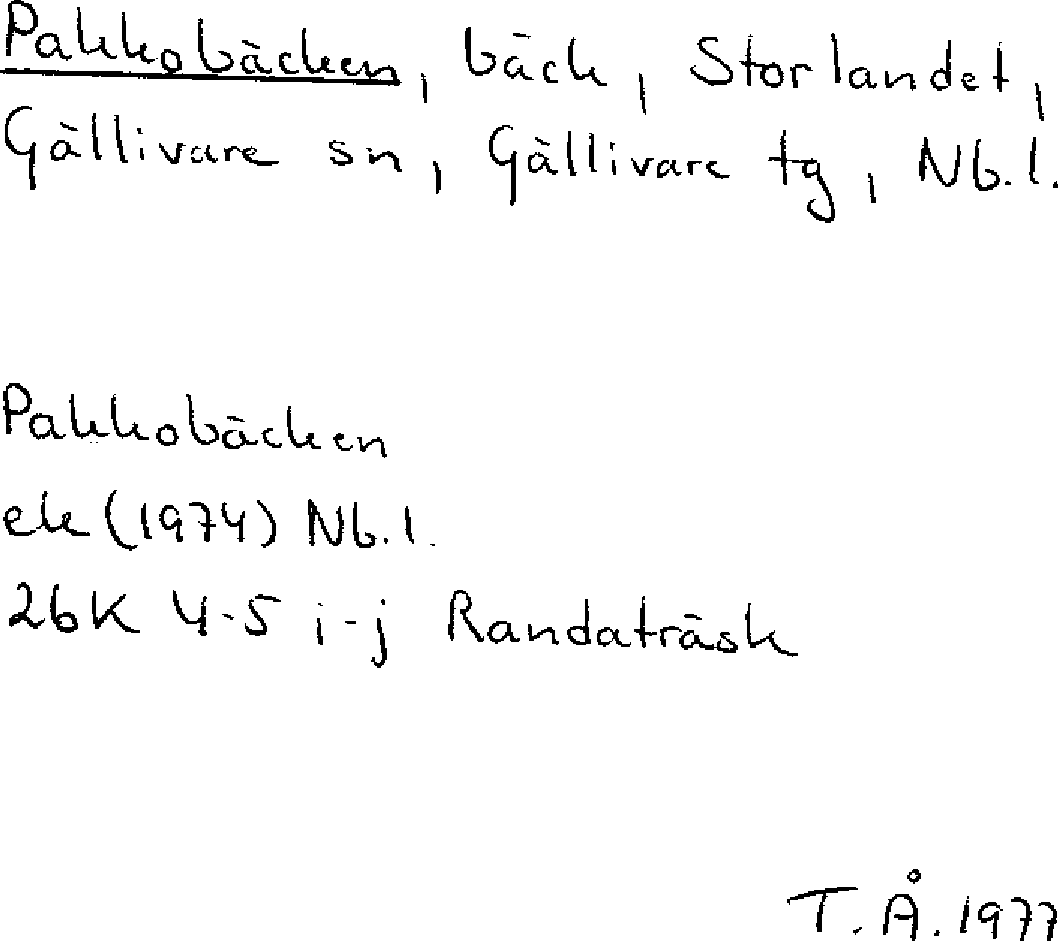 Pakkobäcken, bäck, Storlandet,
Gällivare sn, Gällivare tg, Nb.l.
Pakkobäcken
ek (1974) Nb.l.
26K 4-5 i-j Randaträsk
T.Å.1977